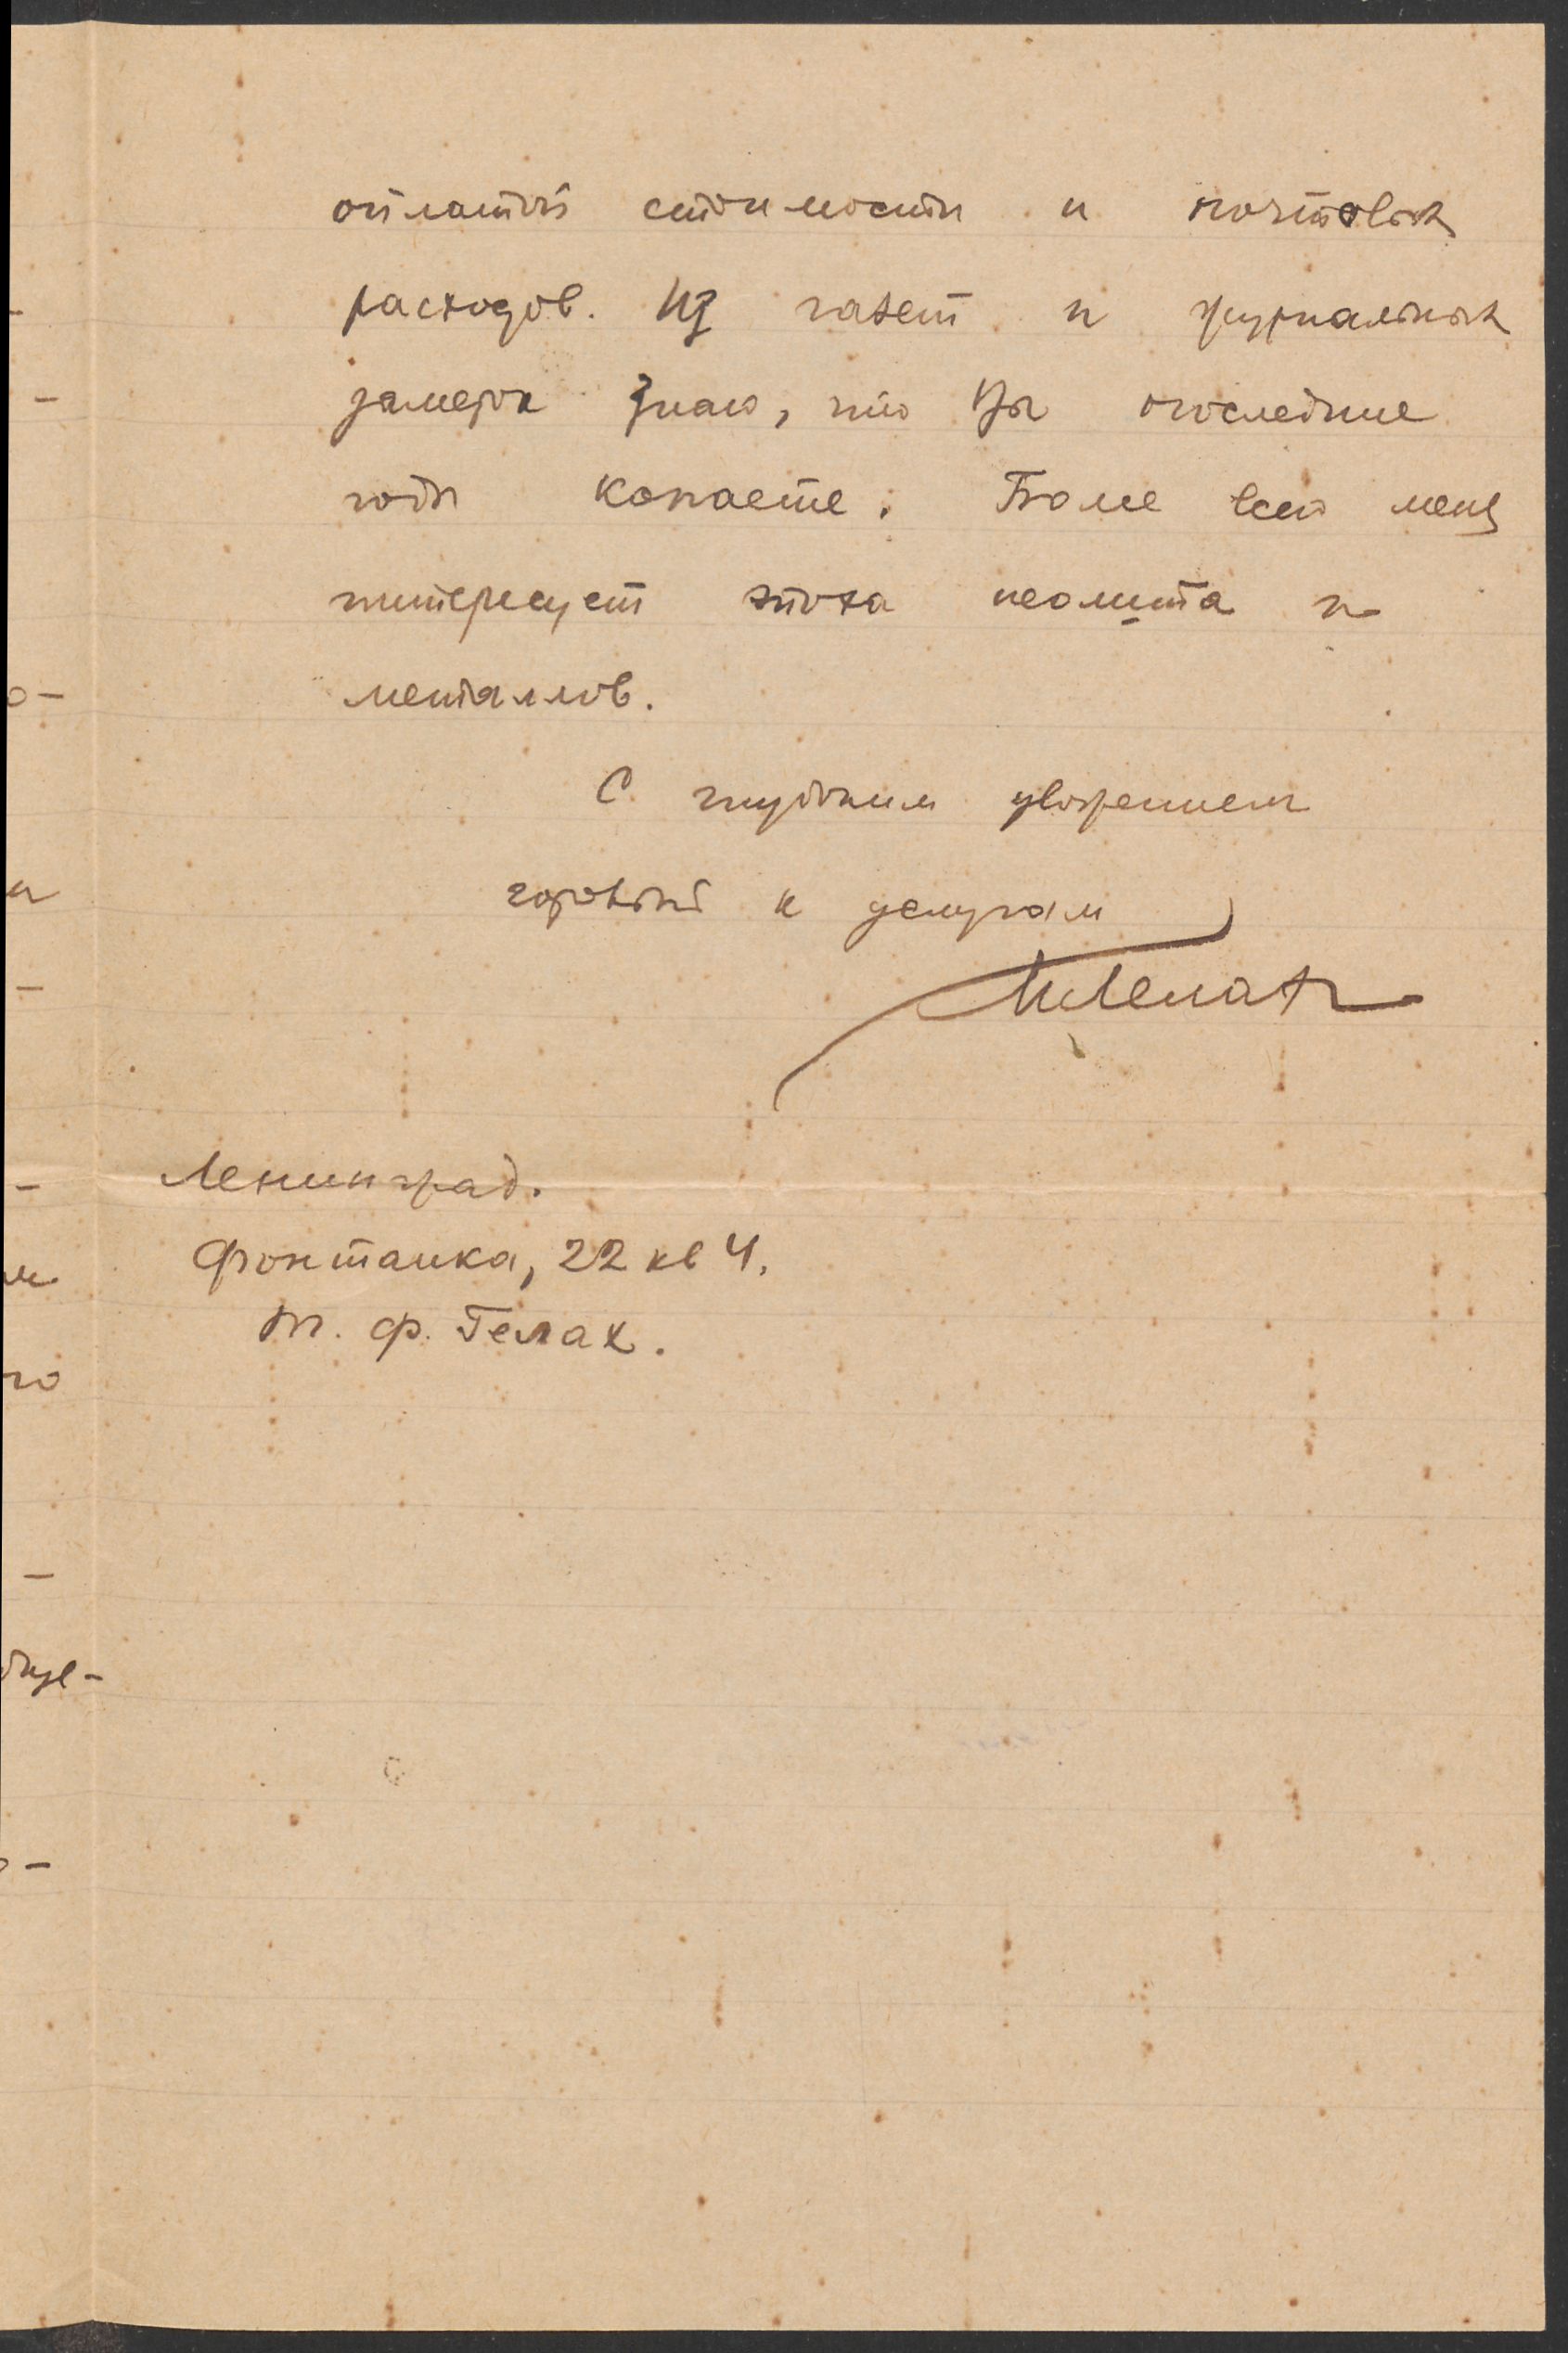 оплатой стоимости и почтовых
расходов. Из газет и журнальных
заметок знаю, что Вы последние
годы копаете. Более всего меня
интересует эпоха неолита и
металлов.
С глубоким уважением
готовый к услугам
Ленинград.
Фонтанка, 22 кв 4.
Т. Ф. Гелах.